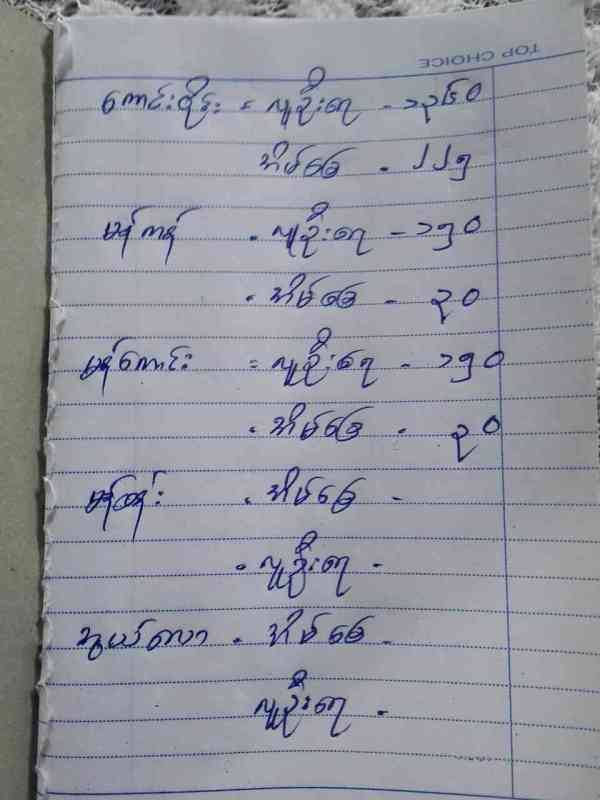 TOP CHOICE
ကောင်းတိုင်း = လူဦးရေ - ၁၃၆၀
အိမ်ခြေ - ၂၂၅
မန်ကန် - လူဦးရေ - ၁၅၀
- အိမ်ခြေ - ၃၀
မန်ကောင်း = လူဦးရေ - ၁၅၀
- အိမ်ခြေ - ၃၀
- အိမ်ခြေ -
- လူဦးရေ -
အိမ်ခြေ -
လူဦးရေ -